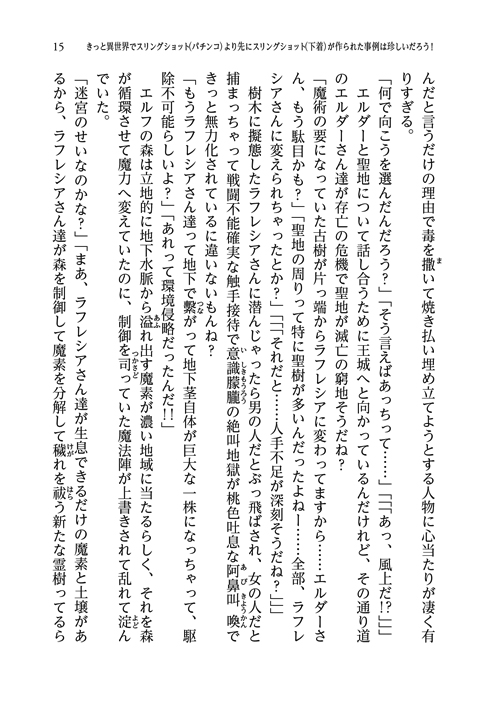 15　きっと異世界でスリングショット(パチンコ)より先にスリングショット(下着)が作られた事例は珍しいだろう!
んだと言うだけの理由で毒を撒いて焼き払い埋め立てようとする人物に心当たりが凄く有
りすぎる。
「何で向こうを選んだんだろう?」「そう言えばあっちって……」「「「あっ、風上だ!?」」」
　エルダーと聖地について話し合うために王城へと向かっているんだけれど、その通り道
のエルダーさん達が存亡の危機で聖地が滅亡の窮地そうだね?
「魔術の要になっていた古樹が片っ端からラフレシアに変わってますから……エルダーさ
ん、もう駄目かも?」「聖地の周りって特に聖樹が多いんだったよねー……全部、ラフレ
シアさんに変えられちゃったとか?」「「「それだと……人手不足が深刻そうだね?」」」
　樹木に擬態したラフレシアさんに潜んじゃったら男の人だとぶっ飛ばされ、女の人だと
捕まっちゃって戦闘不能確実な触手接待で意識朦朧の絶叫地獄が桃色吐息な阿鼻叫喚で
きっと無力化されているに違いないもんね?
「もうラフレシアさん達って地下で繋がって地下茎自体が巨大な一株になっちゃって、駆
除不可能らしいよ?」「あれって環境侵略だったんだ!!」
　エルフの森は立地的に地下水脈から溢れ出す魔素が濃い地域に当たるらしく、それを森
が循環させて魔力へ変えていたのに、制御を司っていた魔法陣が上書きされて乱れて淀ん
でいた。
「迷宮のせいなのかな?」「まあ、ラフレシアさん達が生息できるだけの魔素と土壌があ
るから、ラフレシアさん達が森を制御して魔素を分解して穢れを祓う新たな霊樹ってるら